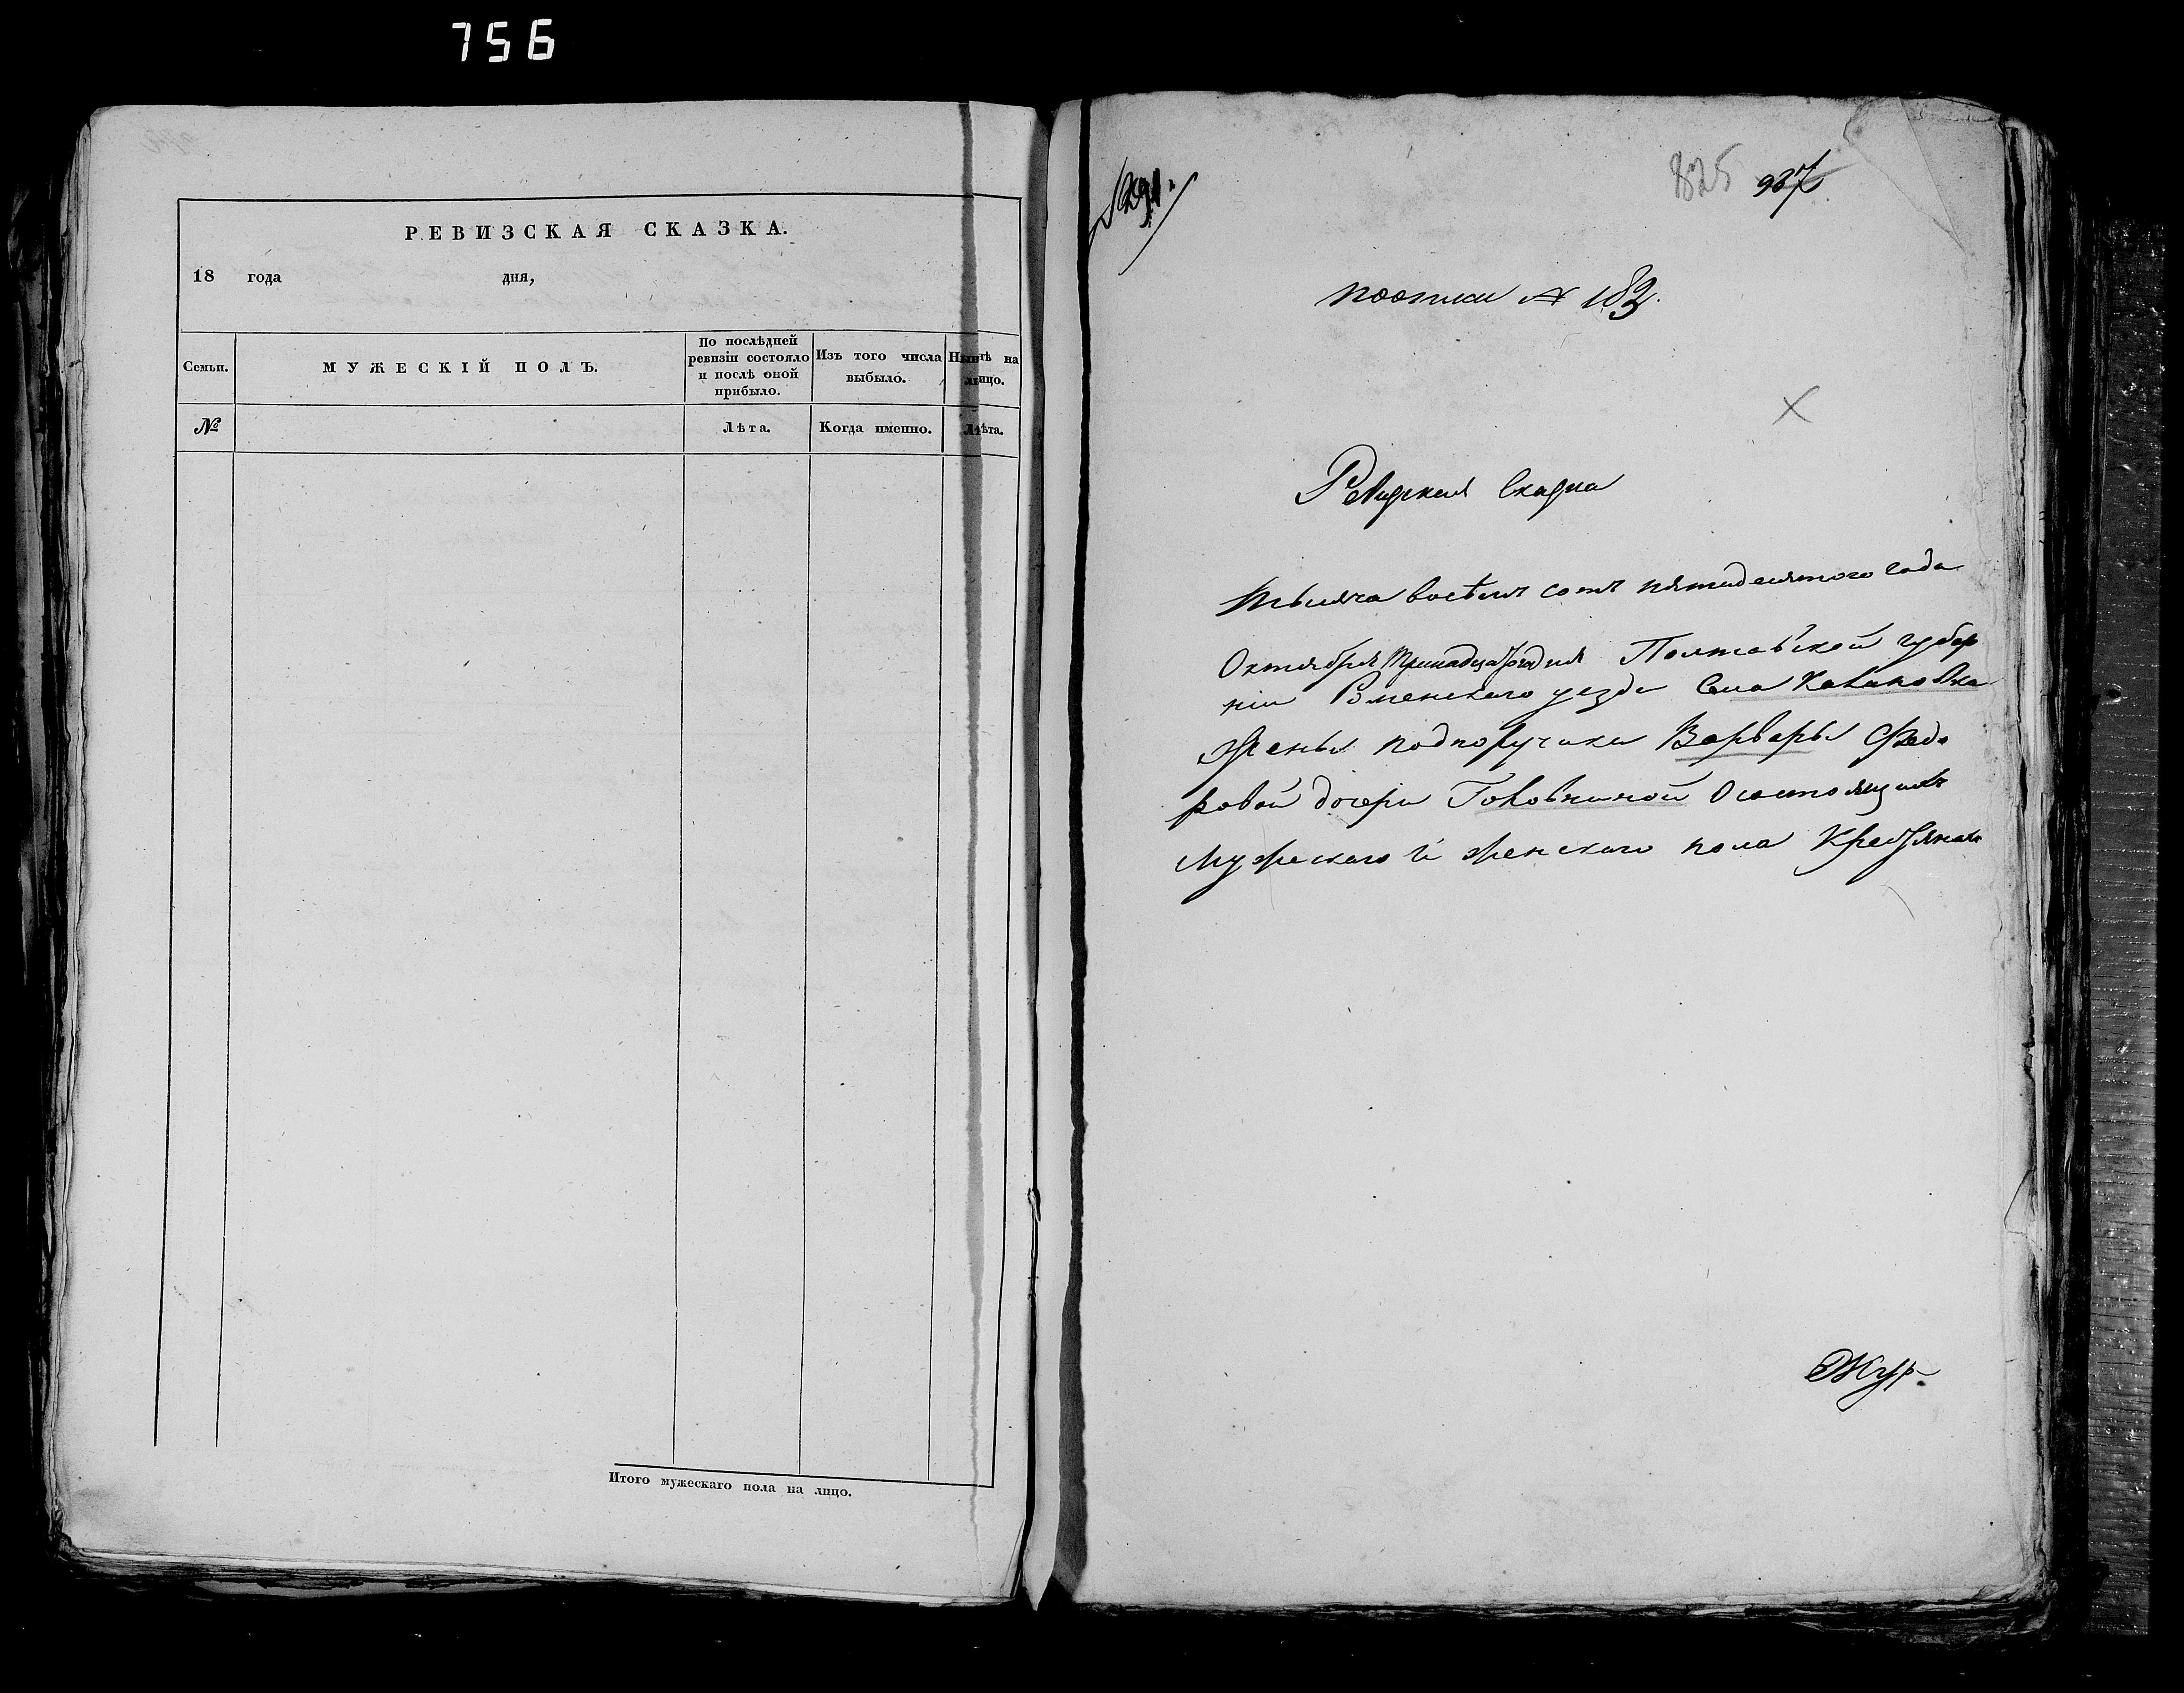 756
РЕВИЗСКАЯ СКАЗКА.
18 года дня,
Семьи.
МУЖЕСКІЙ ПОЛЪ.
По послѣдней ревизіи состояло и послѣ оной прибыло.
Изъ того числа выбыло.
Нынѣ на лицо.
№
Лѣта.
Когда именно.
Лѣта.
Итого мужескаго пола на лицо.
825 937
поописи № 183.
Ревизкая Сказка
тысяча восѣмъ сотъ пятидесятого года
Октября тринадцат дня Полтавской губер
ніи Роменского уезда Села
жены подпоручика Варвары Федо
ровой дочери Головниной Осостоящихъ
мужескаго и женскаго пола Крестьянахъ